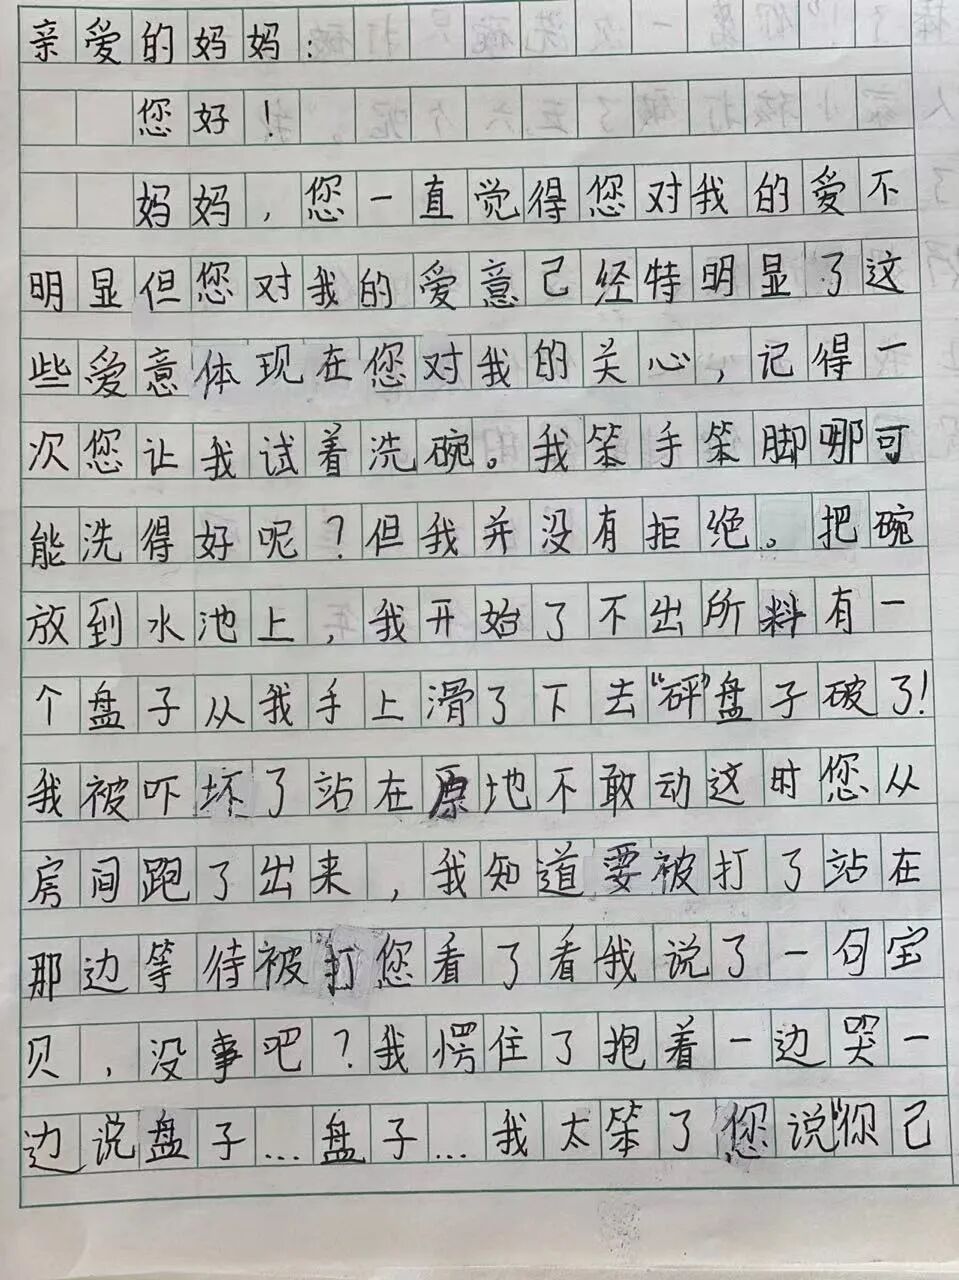 亲爱的妈妈：
您好！
妈妈，您一直觉得您对我的爱不
明显但您对我的爱意己经特明显了这
些爱意体现在您对我的关心，记得一
次您让我试着洗碗。我笨手笨脚哪可
能洗得好呢？但我并没有拒绝。把碗
放到水池上，我开始了不出所料有一
个盘子从我手上滑了下去“砰”盘子破了！
我被吓坏了站在原地不敢动这时您从
房间跑了出来，我知道要被打了站在
那边等待被打您看了看我说了一句宝
贝，没事吧？我愣住了抱着一边哭一
边说盘子…盘子…我太笨了您说“你己